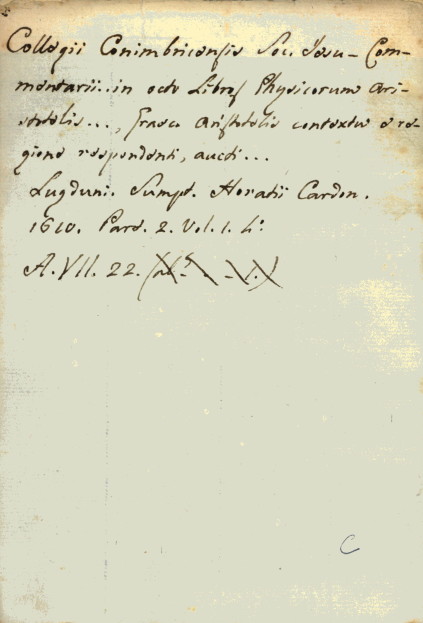 Collegii Conimbricensis Soc. Iesu - Com-
mentarii.. in octo Libros Physicorum Ari-
stotelis..., Graeco Aristotelis contextu e re-
gione respondenti, aucti...
Lugduni. Sumpt. Horatii Cardon.
1610. Pars. 2. Vol. 1. 4°.
A. VII. 22.
C